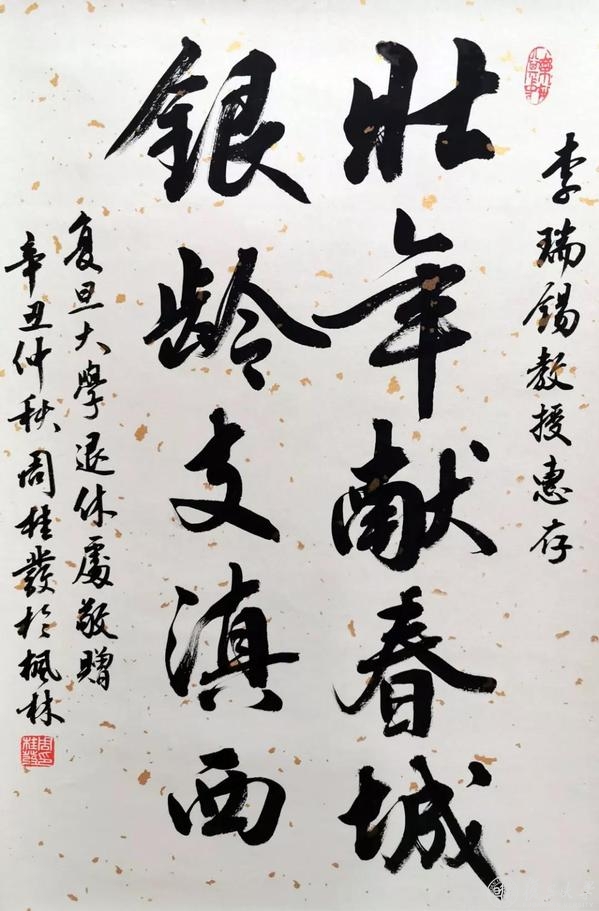 李瑞锡教授惠存
壮年献春城
银龄支滇西
复旦大學退休處敬贈
辛丑仲秋周桂發於枫林
周印桂發